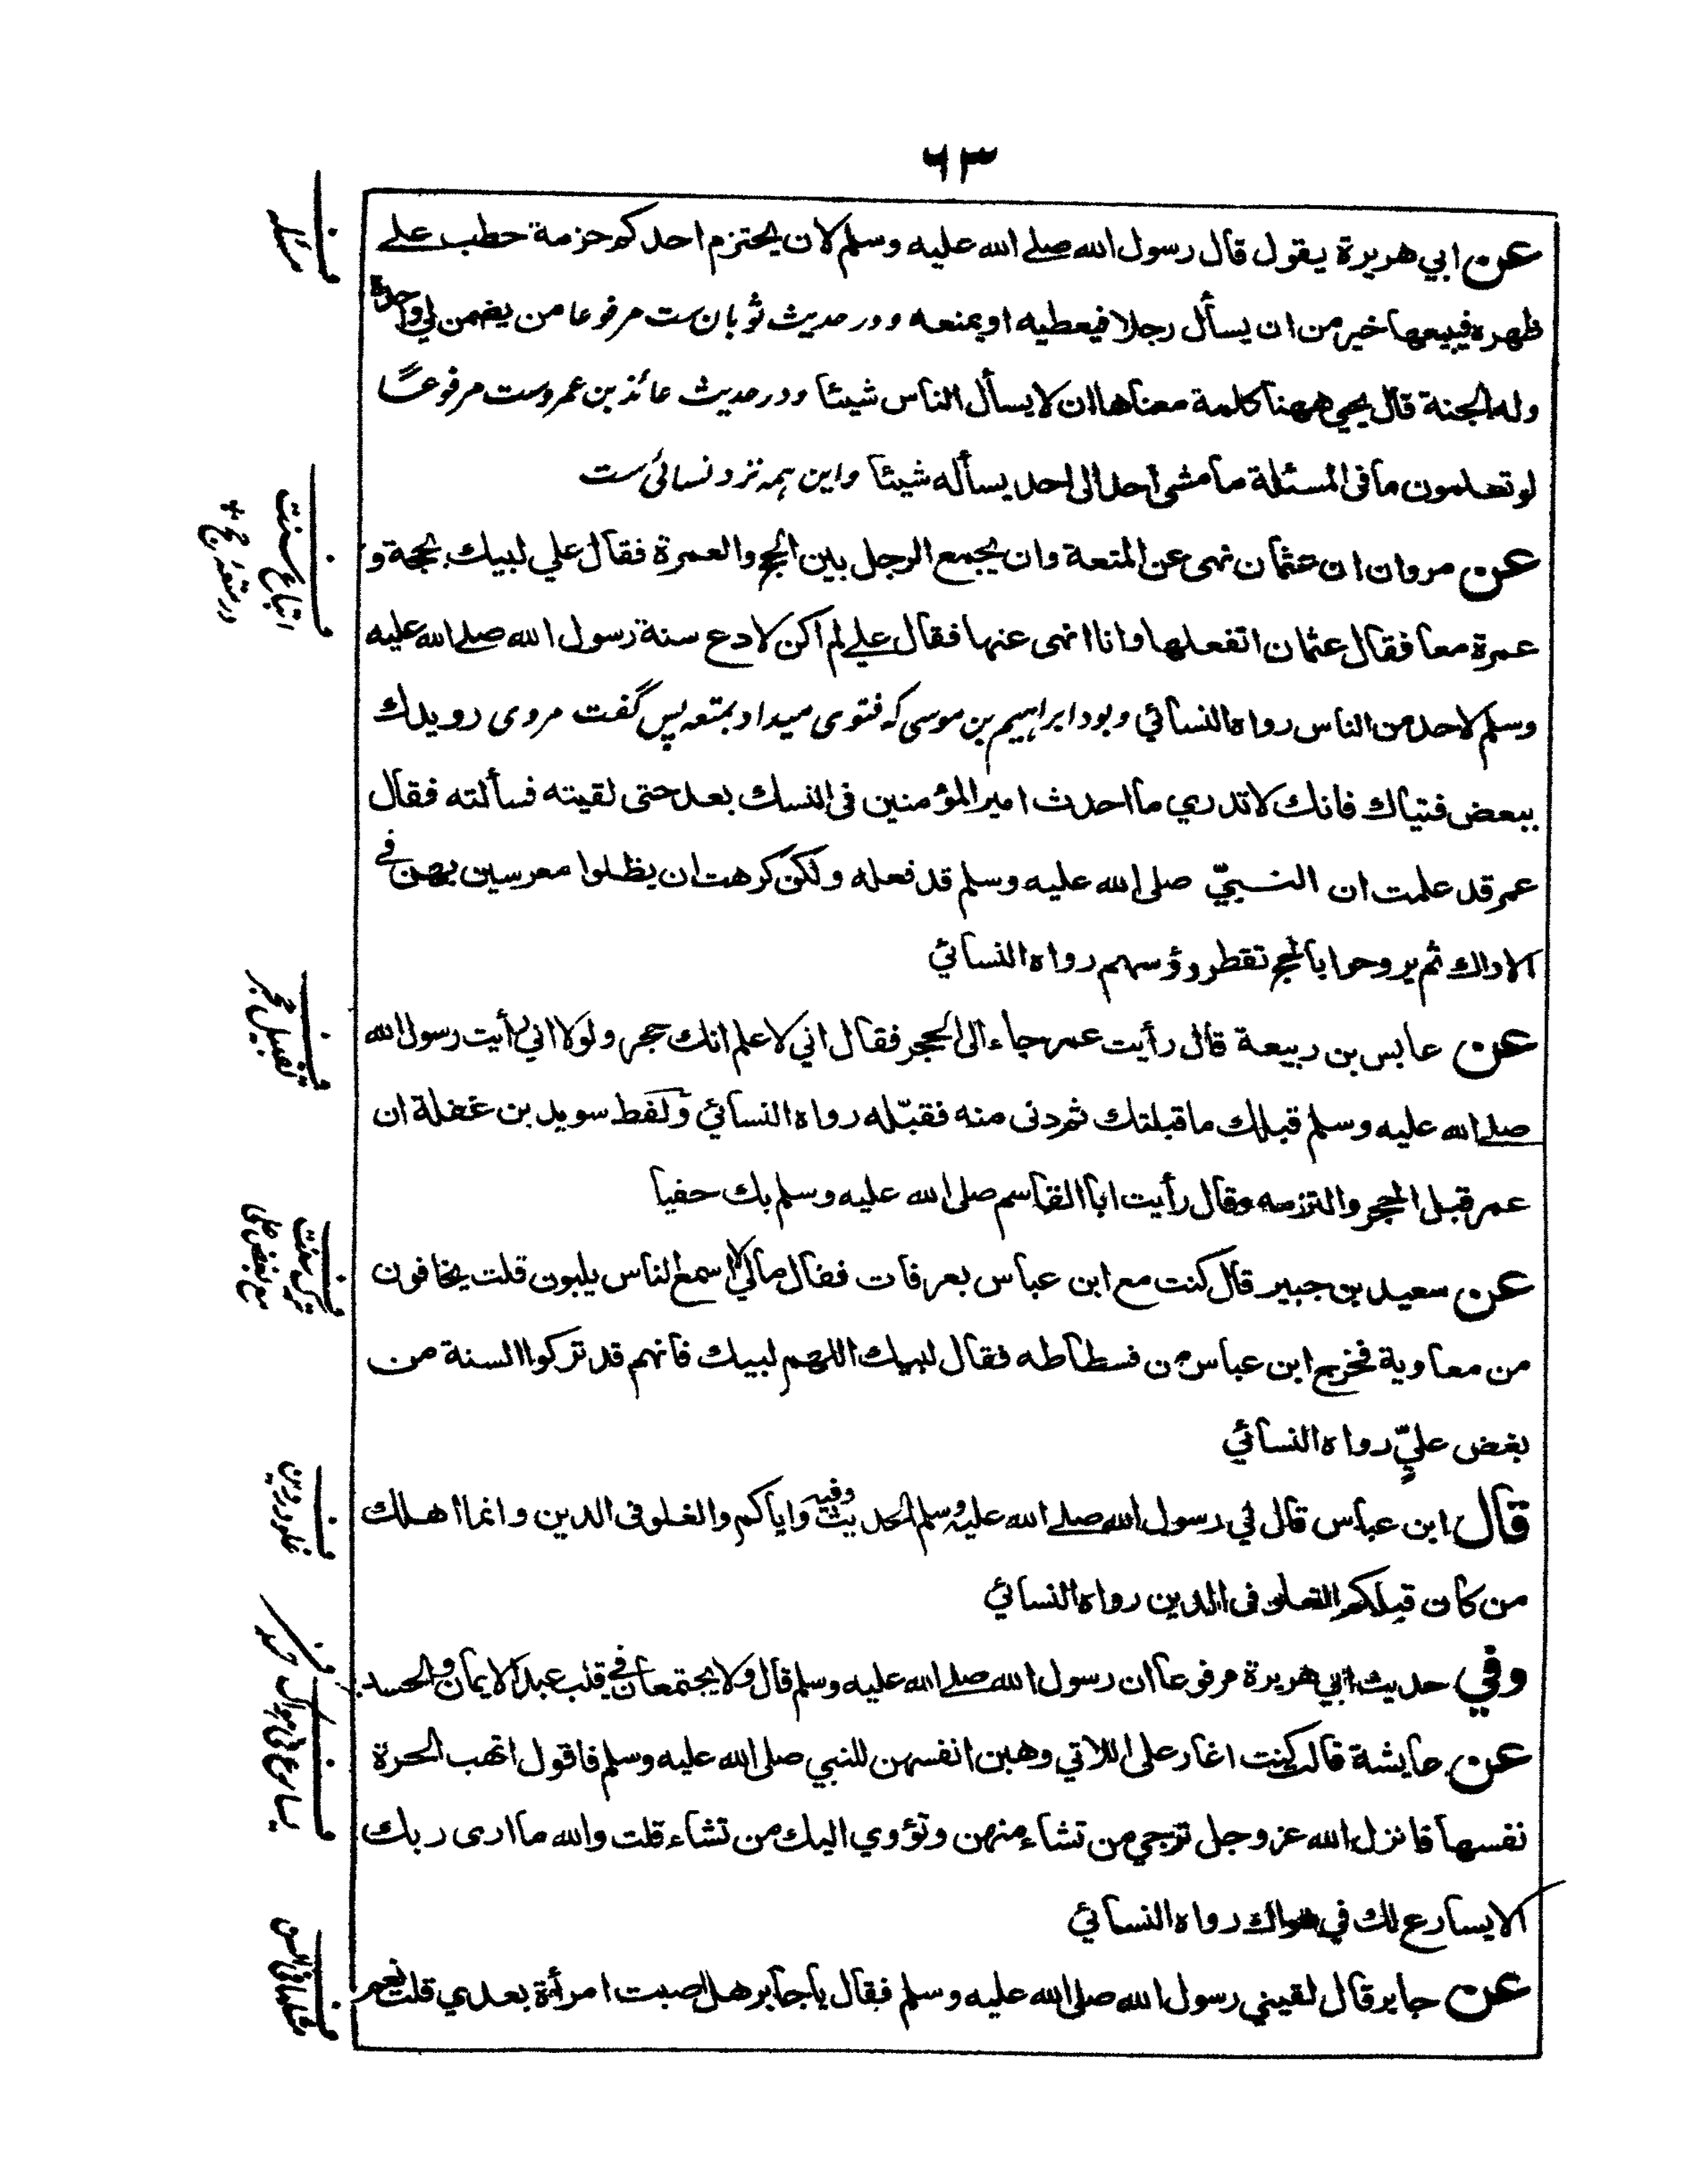 ٦٣
عن ابي هريرة يقول قال رسول الله صلے الله عليه وسلم لان يحتزم احدكم حزمة حطب علے
ظهره فيبيعها خير من ان يسأل رجلا فيعطيه او يمنعه ودر حديث ثوبان ست مرفوعا من يضمن لي واحدة
وله الجنة قال يحيي ههنا كلمة معناها ان لا يسأل الناس شيئا ودر حديث عائذ بن عمروست مرفوعًا
لو تعلمون ما فى المسئلة ما مشى احد الى احد يسأله شيئا واين همه نزد نسائى ست
عن مروان ان عثمان نهى عن المتعة وان يجمع الرجل بين الحج والعمرة فقال علي لبيك بحجة و
عمرة معا فقال عثمان اتفعلها وانا انهى عنها فقال علے لم اكن لادع سنة رسول الله صلے الله عليه
وسلم لاحد من الناس رواه النسائي وبود ابراهيم بن موسى كه فتوى ميداد بمتعه پس گفت مروى رويدك
ببعض فتياك فانك لا تدري ما احدث امير المؤمنين فى النسك بعد حتى لقيته فسألته فقال
عمر قد علمت ان النبيّ صلى الله عليه وسلم قد فعله ولكن كرهت ان يظلوا معرسين بهن في
الاراك ثم يروحوا بالحج تقطر رؤسهم رواه النسائي
عن عابس بن ربيعة قال رأيت عمر جاء الى الحجر فقال اني لاعلم انك حجر ولولا اني رأيت رسول الله
صلے الله عليه وسلم قبلك ما قبلتك ثم دنى منه فقبّله رواه النسائي ولفظ سويد بن غفلة ان
عمر قبل الحجر والتزمه وقال رأيت ابا القاسم صلى الله عليه وسلم بك حفيا
عن سعيد بن جبير قال كنت مع ابن عباس بعرفات فقال مالي لا اسمع الناس يلبون قلت يخافون
من معاوية فخرج ابن عباس من فسطاطه فقال لبيك اللهم لبيك فانهم قد تركوا السنة من
بغض عليّ رواه النسائي
قال ابن عباس قال لي رسول الله صلے الله عليه وسلم الحديث وفيه واياكم والغلو فى الدين وانما اهلك
من كان قبلكم الغلو فى الدين رواه النسائي
وفي حديث ابي هريرة مرفوعا ان رسول الله صلے الله عليه وسلم قال ولا يجتمعان في قلب عبد الايمان والحسد
عن عايشة قالت كنت اغار على اللاتي وهبن انفسهن للنبي صلى الله عليه وسلم فاقول اتهب الحرة
نفسها فانزل الله عز وجل ترجي من تشاء منهن وتؤوي اليك من تشاء قلت والله ما ارى ربك
الا يسارع لك في هواك رواه النسائي
عن جابر قال لقيني رسول الله صلى الله عليه وسلم فقال يا جابر هل اصبت امرأة بعدي قلت نعم
ف
اتباع سنت
در متعۂ حج +
ف
تقبيل حجر
ف
ترك سنت
ف
غلو در دين
ف